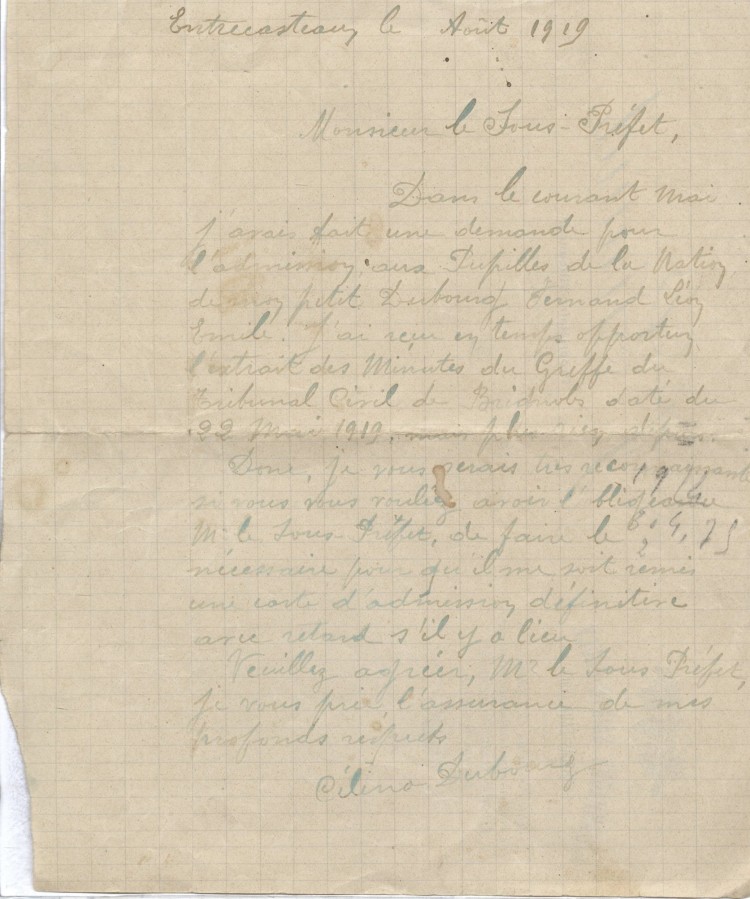 Entrecasteaux le Août 1919
Monsieur le Sous-Préfet,
Dans le courant Mai
j'avais fait une demande pour
l'admission aux Pupilles de la Nation,
de mon petit Dubourg Fernand Léon
Emile. J'ai reçu en temps opportun
l'extrait des Minutes du Greffe du
Tribunal Civil de Brignoles daté du
22 Mai 1919, mais plus rien depuis.
Donc, je vous serais très reconnaissante
si vous vous vouliez avoir l'obligeance
Mr le Sous-Préfet, de faire le
nécessaire pour qu'il me soit remis
une carte d'admission définitive
avec retard s'il y a lieu
Veuillez agréer, Mr le Sous Préfet,
je vous prie l'assurance de mes
profonds respects
Célina Dubourg